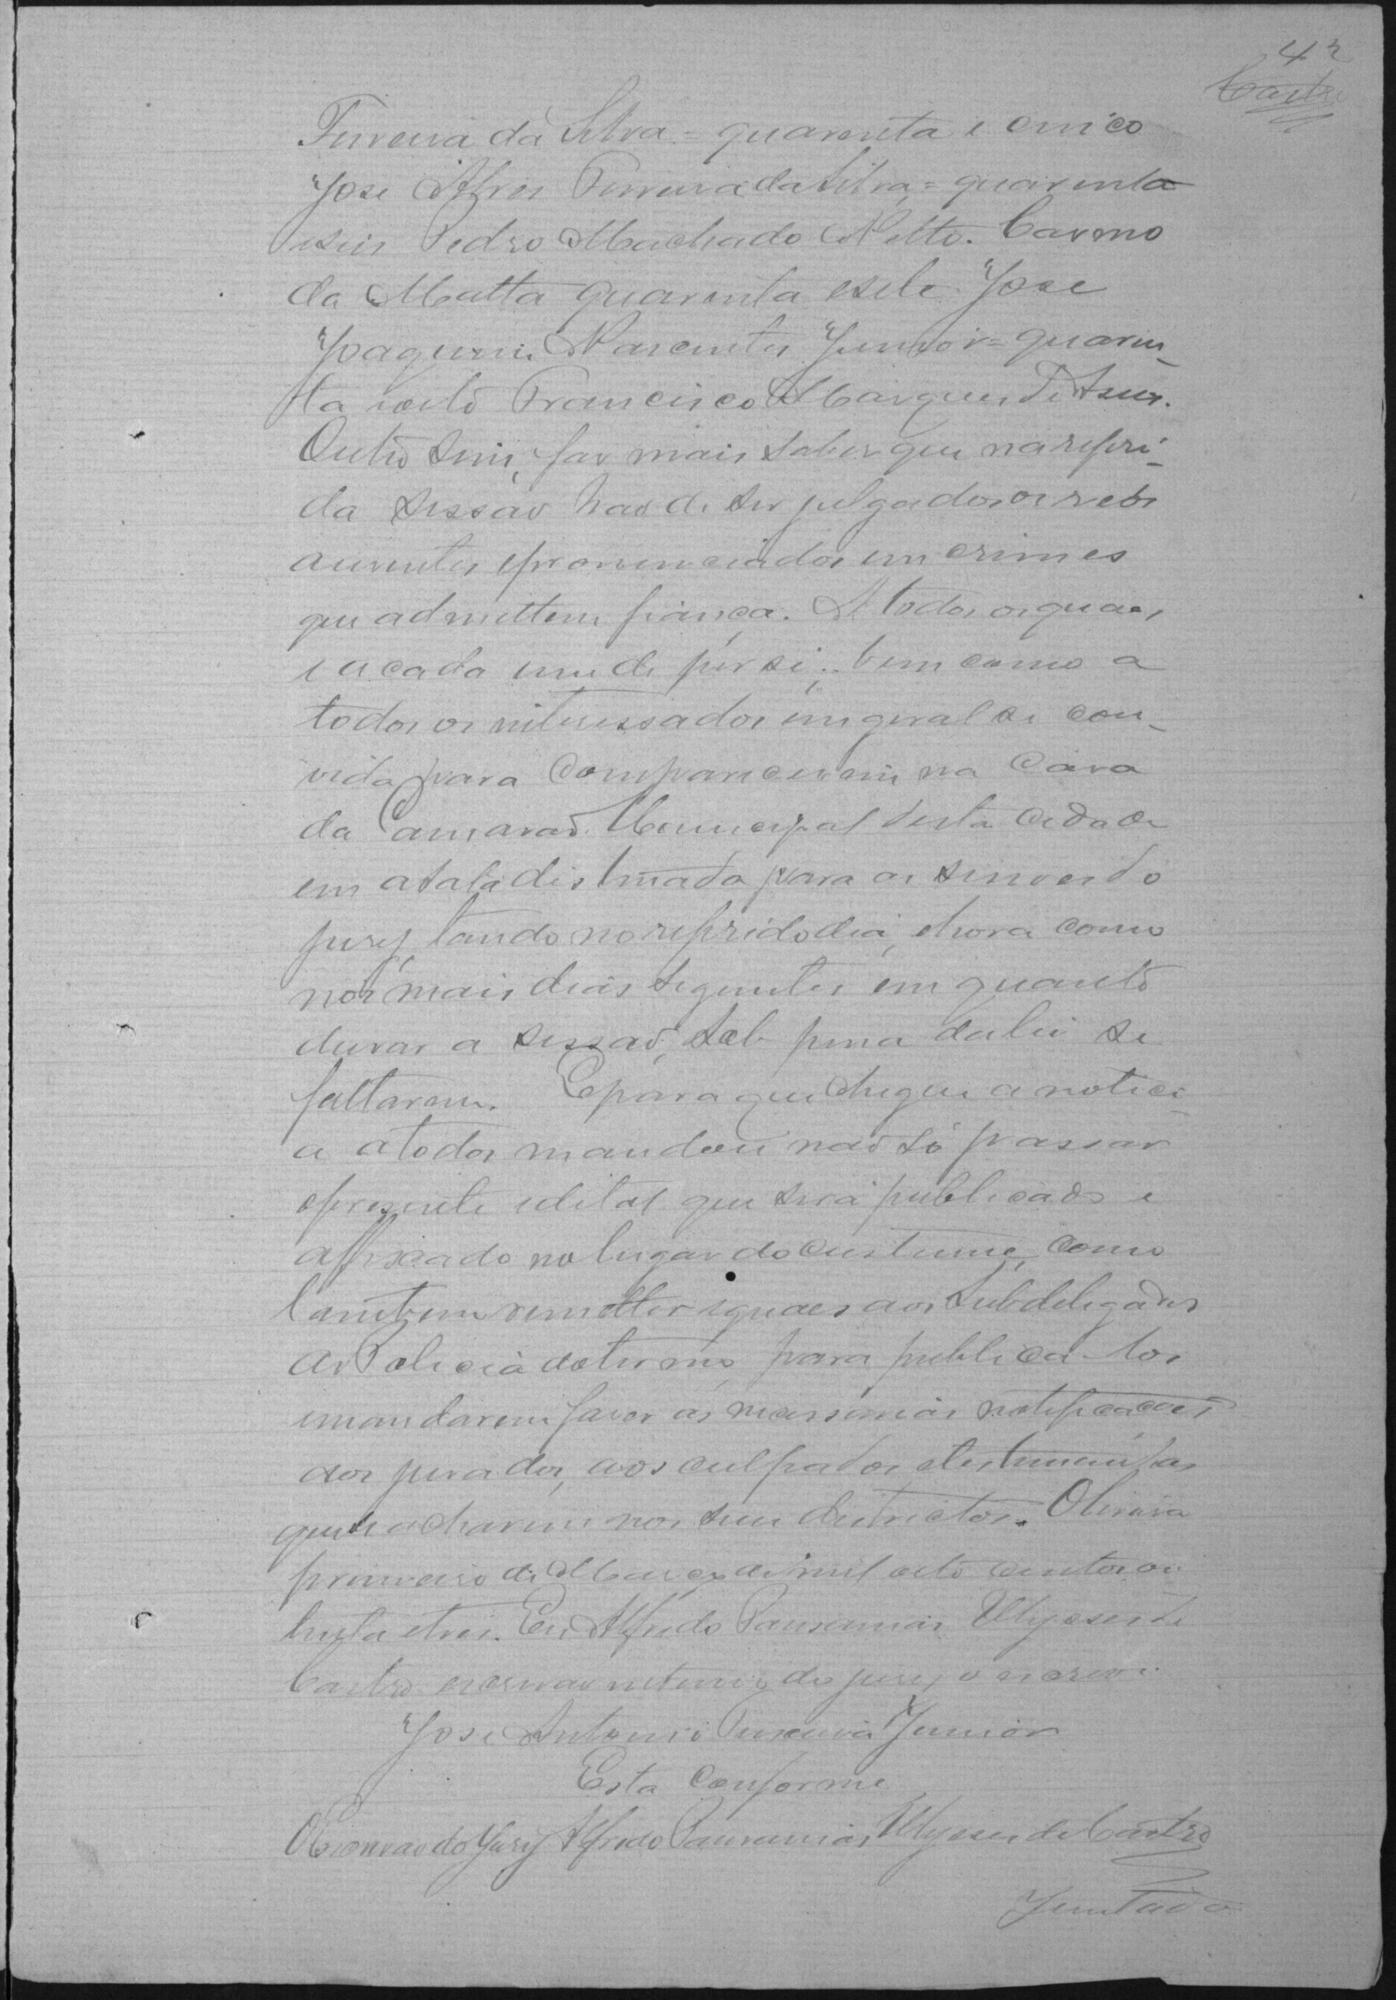 42
Castro
Ferreira da Silva = quarenta e cinco
Jose Alves Ferreira da Silva = quarenta
e seis Pedro Machado Netto. Carmo
da Matta quarenta e sete Jose
Joaquim Nascentes Junior = quaren-
ta e oito Francisco Marques de
Outro sim, faz mais saber que na referi-
da sessão hão de ser julgados os reos
auzentes e pronunciados em crimes
que admittem fiança. A todos os quaes
e a cada um de per si, bem como a
todos os interessados em geral se con-
vida para comparecerem na Caza
da Camara Municipal desta cidade
em a sala distinada para as do
jury, tando no referido dia, e hora como
nos mais dias seguintes em quanto
durar a sessão, sob pena da lei se
faltarem. E para que chegue a notici-
a a todos mandou não só passar
o presente edital que será publicado e
affixado no lugar do custume, como
tambem remetter iguaes aos Subdelegados
de Policia do termo, para publica-los
e mandarem fazer as necessarias notificações
aos jurados, aos culpados e testemunhas
que se acharem nos seus districtos. Oliveira
primeiro de Março de mil oito centos oi-
tenta e tres. Eu Alfredo Pausanias Ulysses de
Castro escrivão interino do jury o escrevi.
Jose Antonio Junior
Esta conforme
O Escrivão do Jury Alfredo Pausanias Ulysses de Castro
Juntada